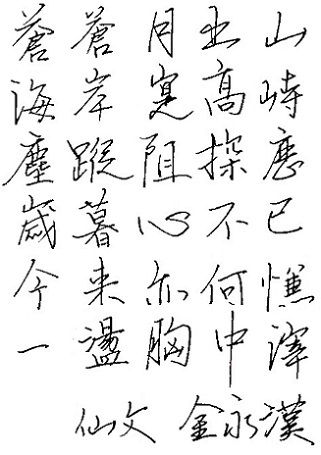 蒼蒼月出山
海岸寔高峙
塵蹤阻探應
歲暮心不已
今来亦何憔
一盪胸中滓
仙文 金永漢